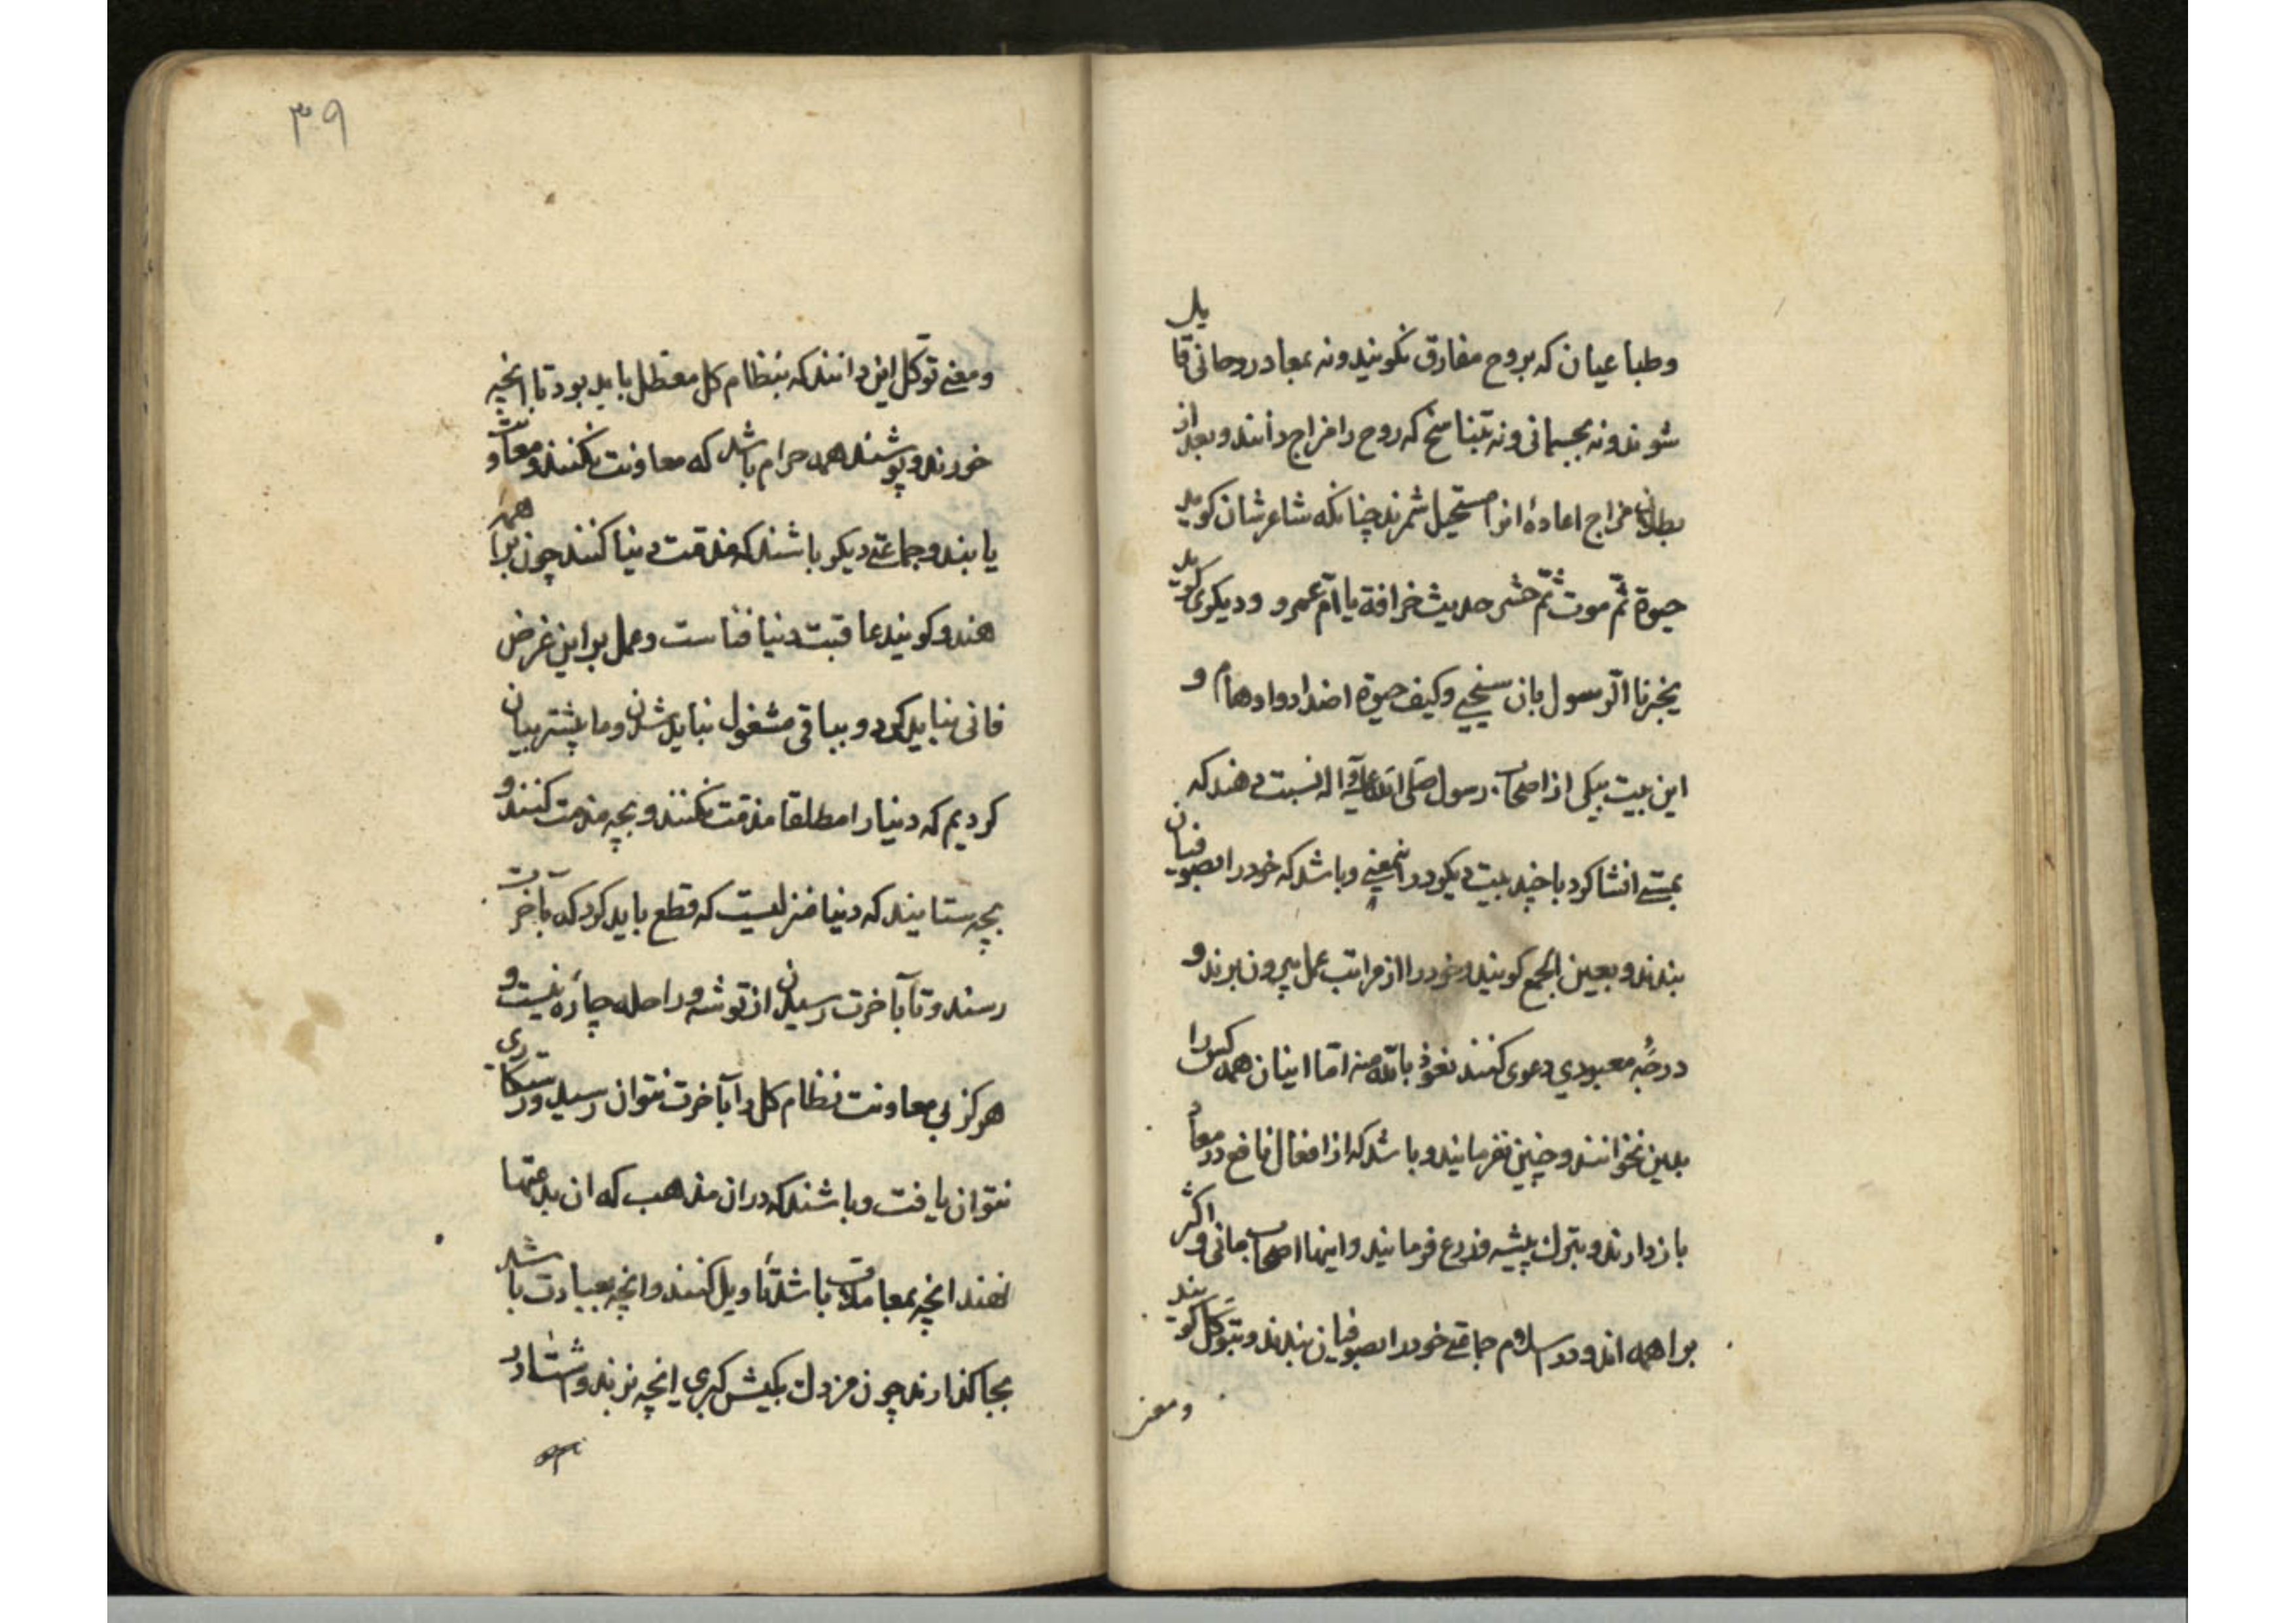 وطباعیان که بروح مفارق نکویند ونه بمعاد روحانی قایل
شوند ونه بجسمانی ونه بتناسخ که روح را مزاج دانند وبعد از
بطلان مزاج اعادهٔ انرا مستحیل شمرند چنانکه شاعرشان کوید
حیوة ثمّ موت ثمّ حشر حدیث خرافة یا امّ عمرو ودیکری کوید
یخبرنا الرسول بان سنحیی وکیف حیوة اصداء وهام و
این بیت بیکی از اصحاب رسول صلی الله علیه وآله نسبت دهند که
بمستی انشا کرد با چند بیت دیکر در اینمعنی وباشد که خود را بصوفیان
بندند وبعین الجمع کویند وخود را از مراتب عمل بیرون برند و
درجهٔ معبودی دعوی کنند نعوذ بالله منه امّا اینان همه کس را
بدین نخوانند وچنین نفرمایند وباشد که از افعال نافع در معاد
باز دارند وبترک پیشه وزرع فرمایند واینها اصحاب مانی واکثر
براهمه اند ودر اسلام جماعتی خود را بصوفیان بندند وبتوکل کویند
ومعنی
۳۹
ومعنی توکّل این دانند که بنظام کل معطل باید بود تا انچه
خورند وپوشند همه حرام باشد که معاونت نکنند ومعاونت
یابند وجماعتی دیکر باشند که مذمّت دنیا کنند چون براهمهٔ
هند وکویند عاقبت دنیا فناست وعمل بر این غرض
فانی نباید کرد وبباقی مشغول نباید شدن وما پیشتر بیان
کردیم که دنیا را مطلقا مذمّت نکنند وبچه مذمت کنند و
بچه ستایند که دنیا منزلیست که قطع باید کرد که بآخرت
رسند وتا بآخرت رسیدن از توشه وراحله چاره نیست و
هرکز بی معاونت نظام کل را بآخرت نتوان رسید ورستکاری
نتوان یافت وباشند که در ان مذهب که ان بدعتها
نهند انچه بمعاملات باشد تاویل کنند وانچه بعبادت باشد
بجا کذارند چون مزدک بکیش کبری انچه نزند واستا در